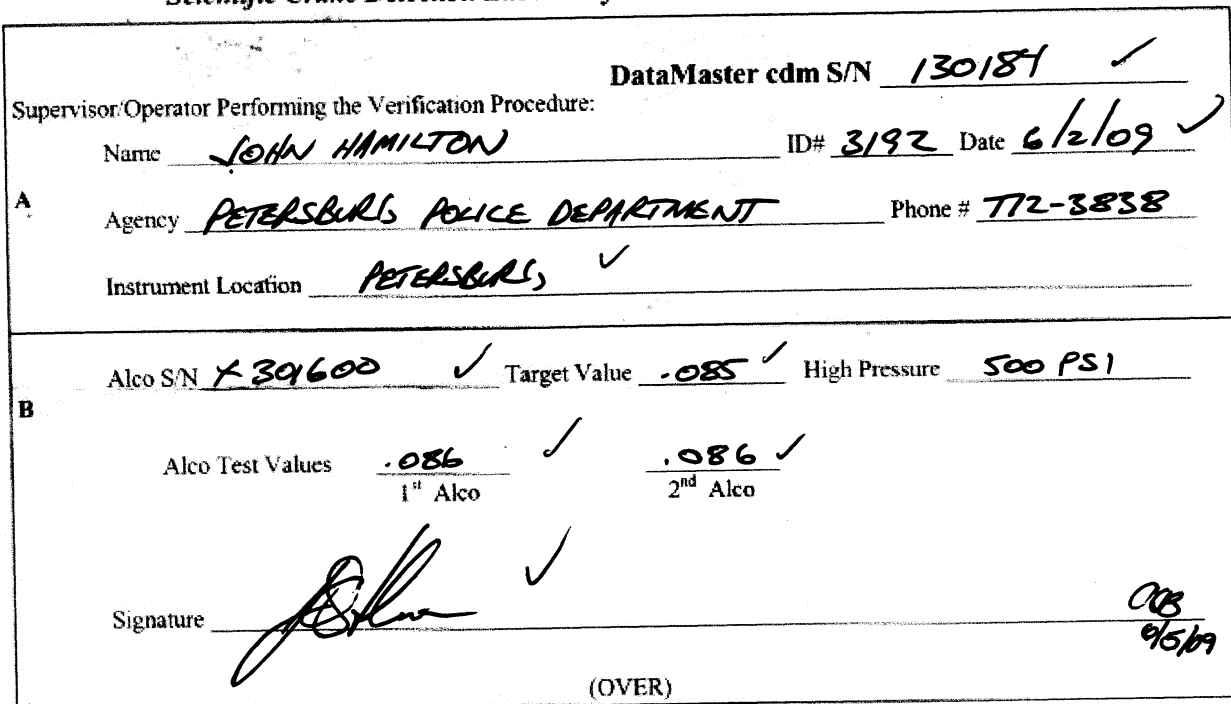 DataMaster cdm S/N 130184 ✓
Supervisor/Operator Performing the Verification Procedure:
Name JOHN HAMILTON ID# 3192 Date 6/2/09 ✓
A
Agency PETERSBURG POLICE DEPARTMENT Phone # 772-3838
Instrument Location PETERSBURG ✓
Alco S/N X301600 ✓ Target Value .085 ✓ High Pressure 500 PSI
B
Alco Test Values .086 ✓ .086 ✓
1st Alco 2nd Alco
Signature ✓
(OVER)